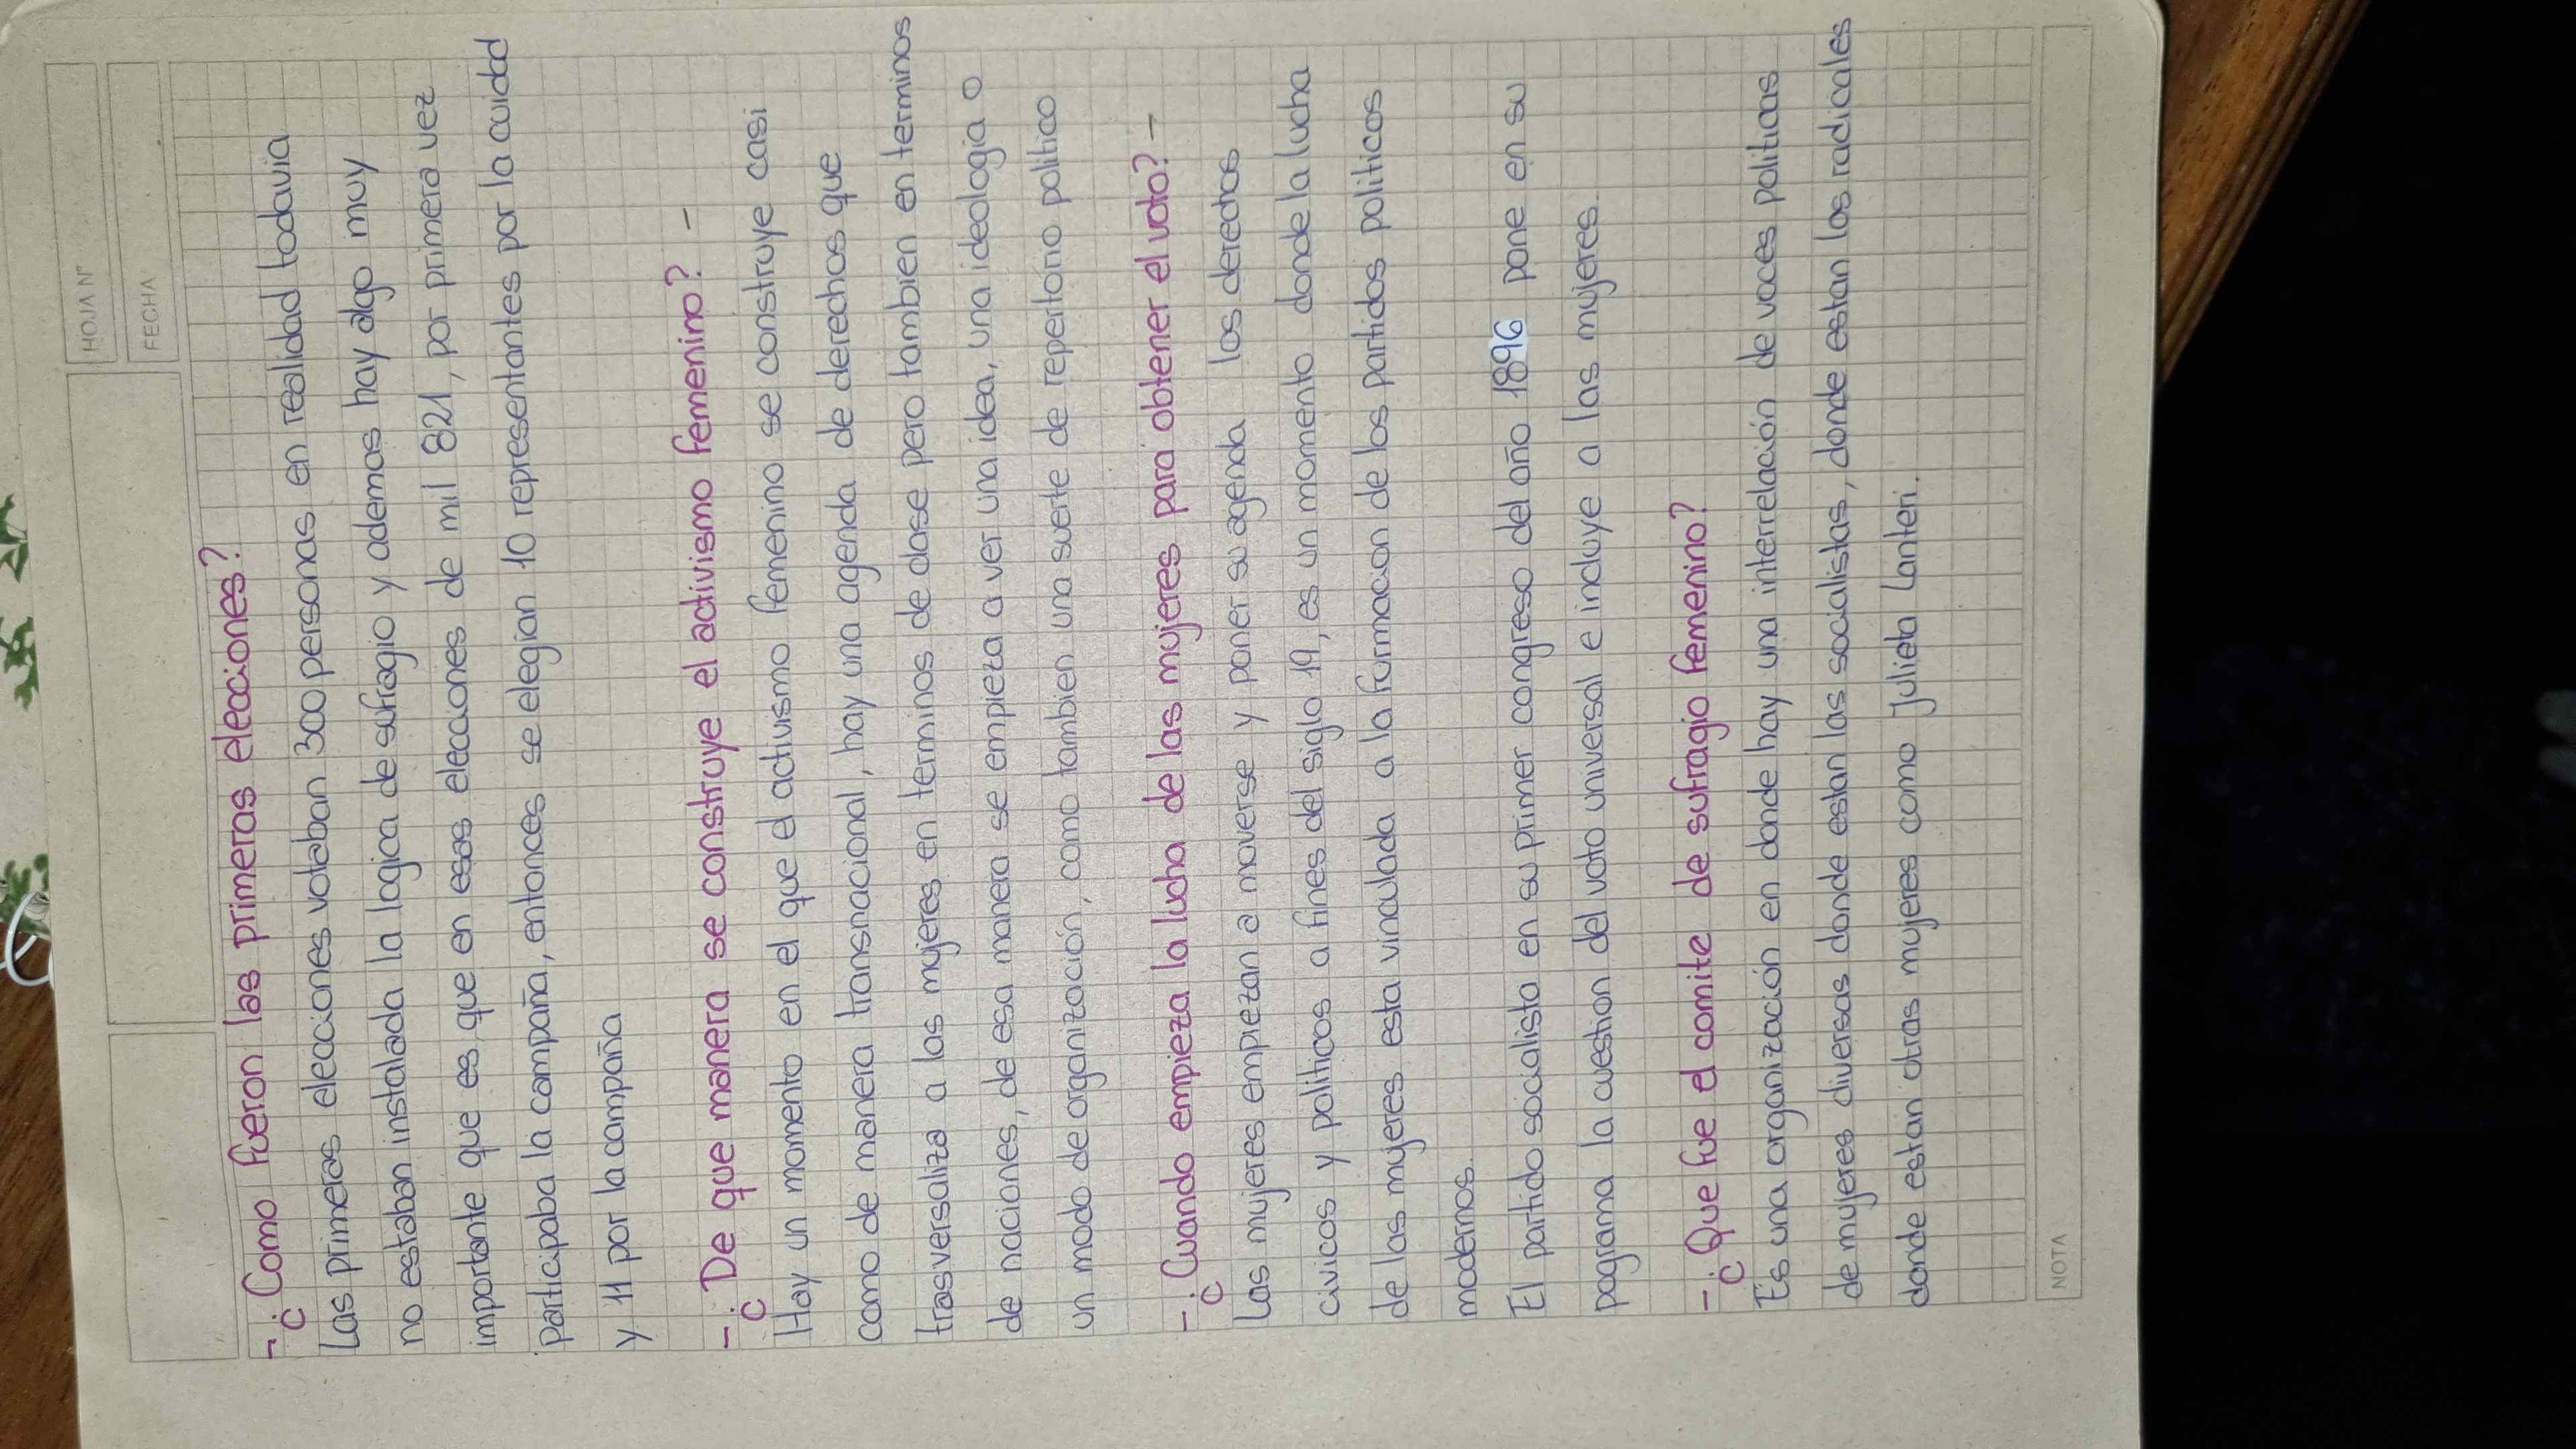 HOJA N°
FECHA
- ¿Como fueron las primeras elecciones?
Las primeras elecciones votaban 300 personas en realidad todavia
no estaban instalada la logica de sufragio y ademas hay algo muy
importante que es, que en esas elecciones de mil 821, por primera vez
participaba la campaña, entonces se elegian 10 representantes por la cuidad
y 11 por la campaña
- ¿De que manera se construye el activismo femenino? -
Hay un momento en el que el activismo femenino se construye casi
como de manera transnacional, hay una agenda de derechos que
trasversaliza a las mujeres en terminos de clase pero tambien en terminos
de naciones, de esa manera se empieza a ver una idea, una ideologia o
un modo de organización, como tambien una suerte de repertorio politico
- ¿Cuando empieza la lucha de las mujeres para obtener el voto? -
Las mujeres empiezan a moverse y poner su agenda los derechos
civicos y politicos a fines del siglo 19, es un momento donde la lucha
de las mujeres esta vinculada a la formacion de los partidos politicos
modernos.
El partido socialista en su primer congreso del año 1896 pone en su
pograma la cuestion del voto universal e incluye a las mujeres.
- ¿Que fue el comite de sufragio femenino?
Es una organización en donde hay una interrelación de voces politicas
de mujeres diversas donde estan las socialistas, donde estan las radicales
donde estan otras mujeres como Julieta Lanteri.
NOTA